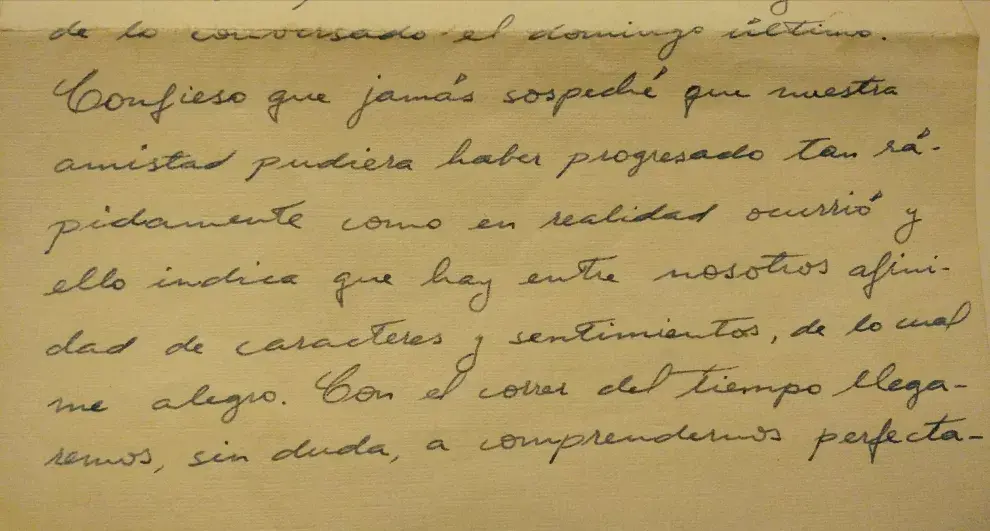 de lo conversado el domingo último.
Confieso que jamás sospeché que nuestra
amistad pudiera haber progresado tan rá-
pidamente como en realidad ocurrió y
ello indica que hay entre nosotros afini-
dad de caracteres y sentimientos, de lo cual
me alegro. Con el correr del tiempo llega-
remos, sin duda, a comprendernos perfecta-